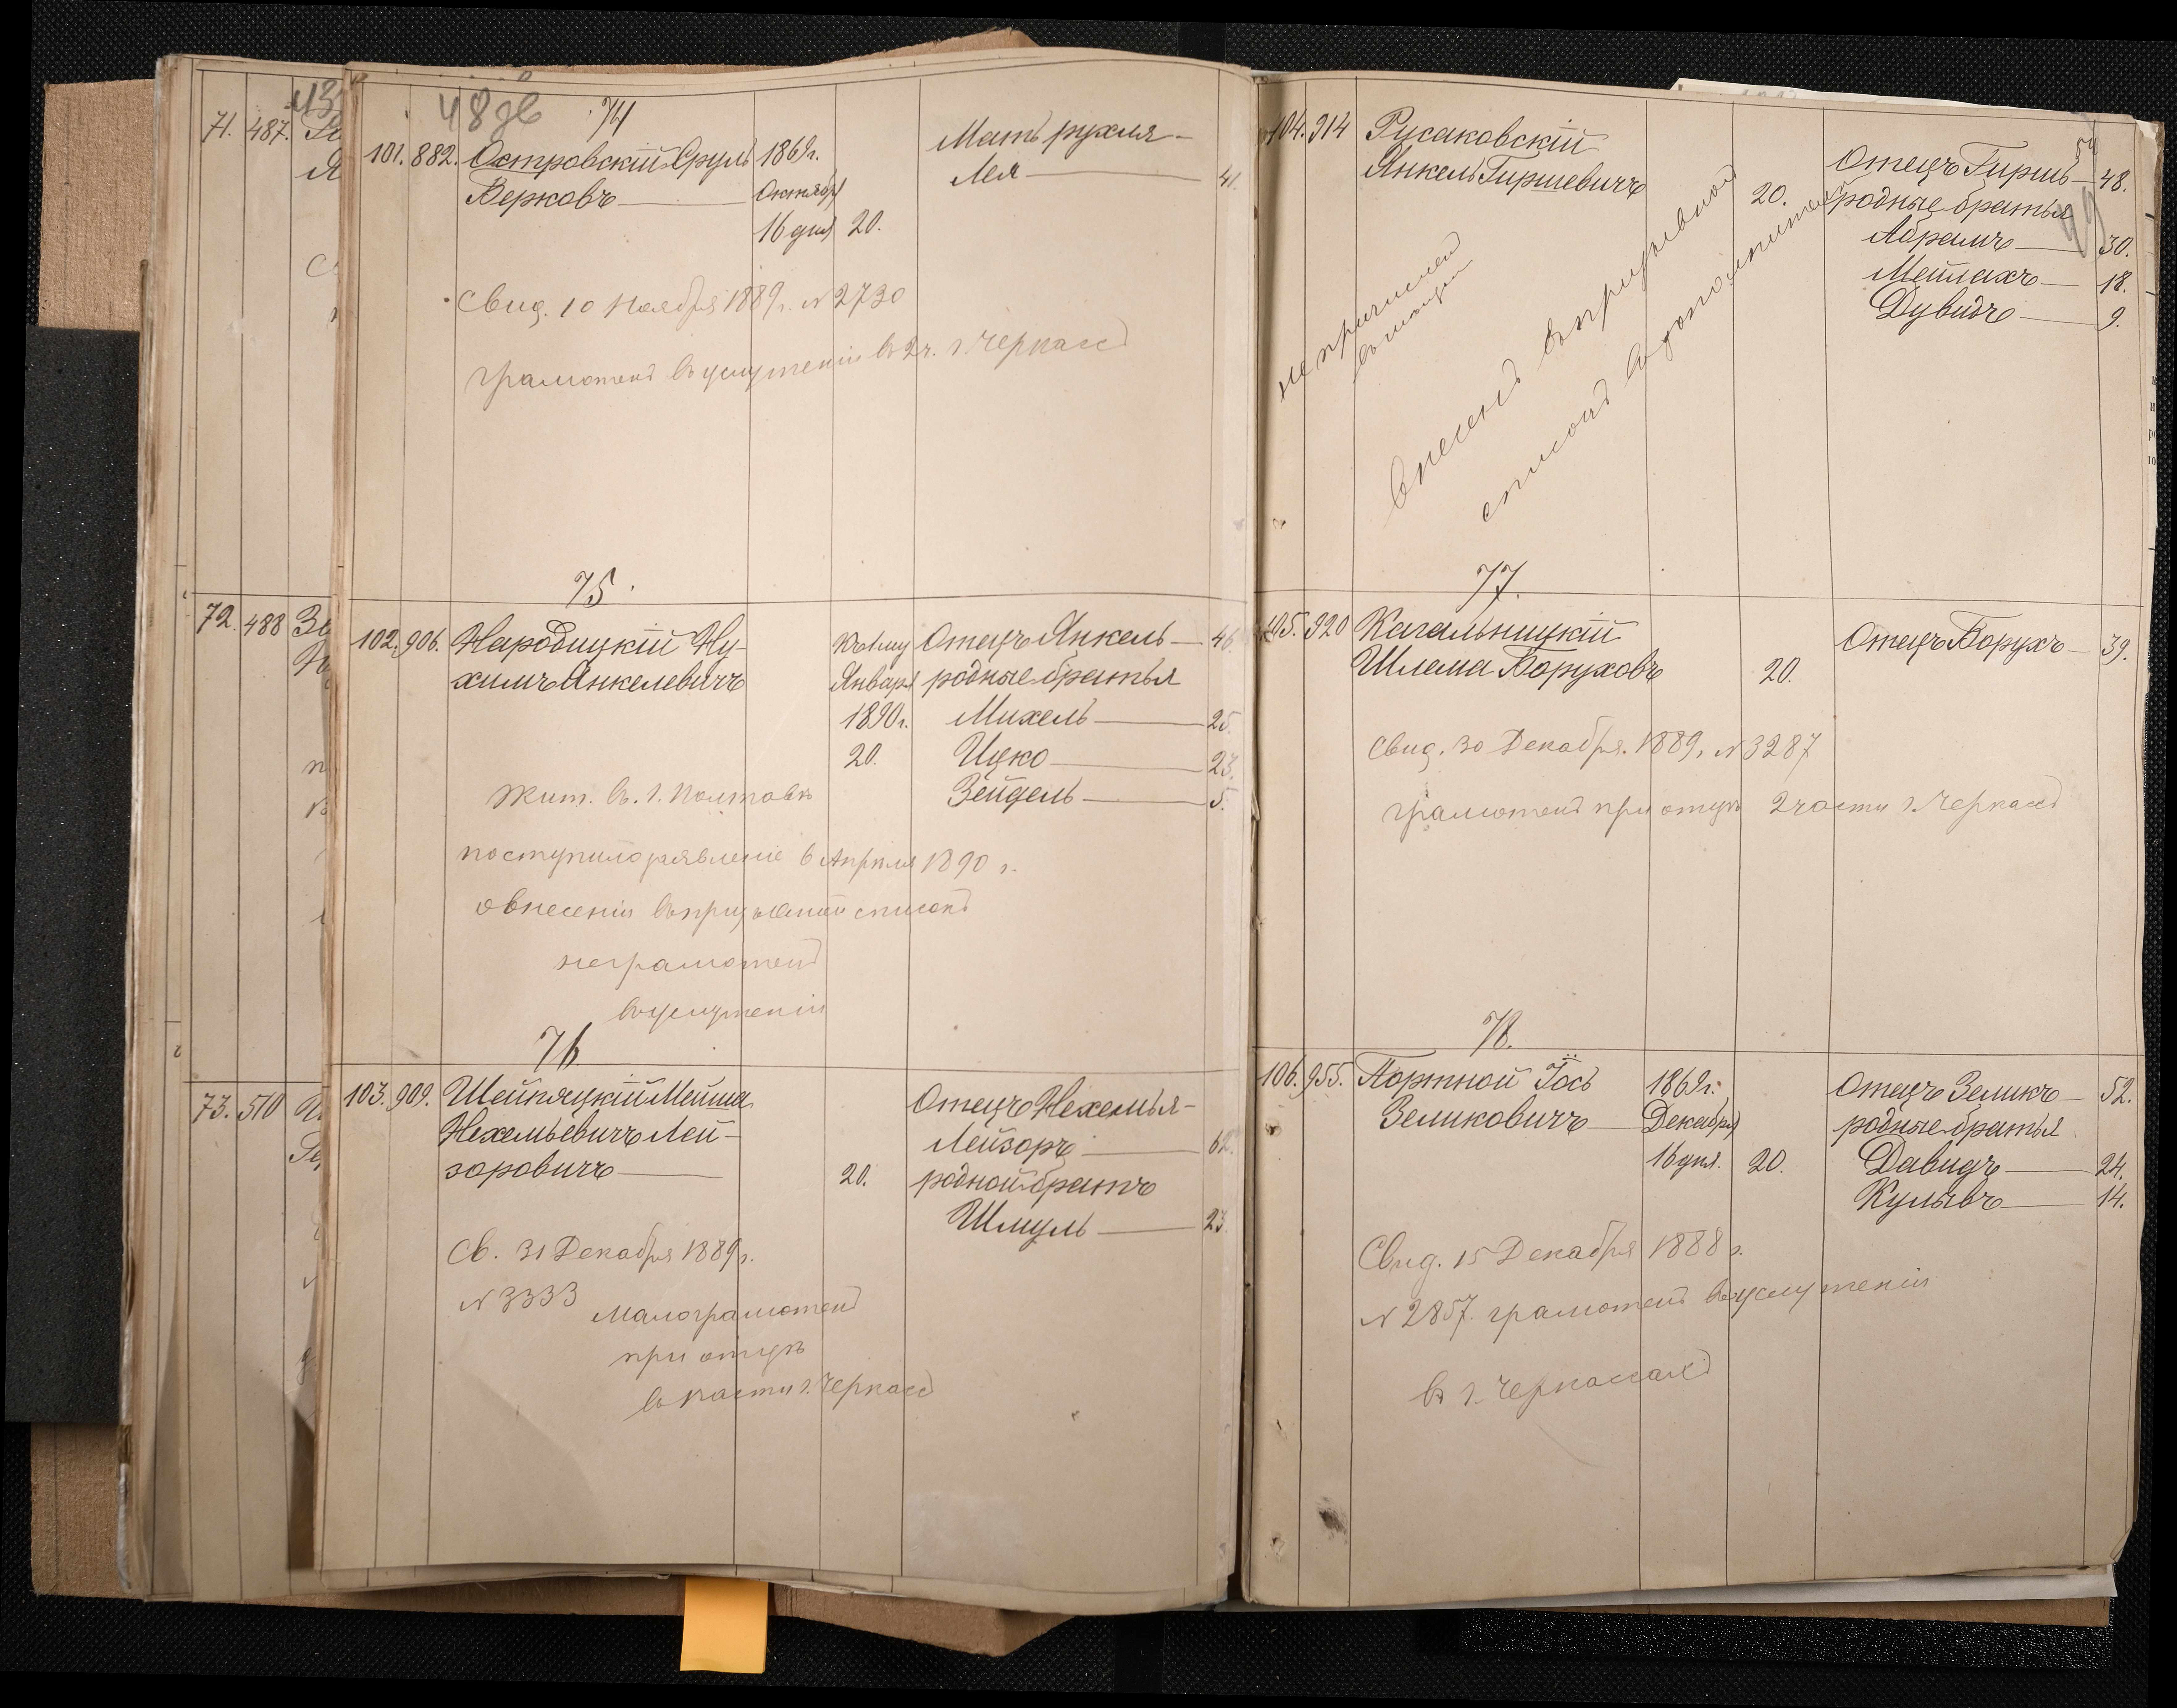 71. 487.
72. 488
73. 510
48 зв
74
101. 882. Островскій Сруль 1869 г. Мать рухля-
Берковъ Октября Лея 41.
16 дня 20.
Свид. 10 Ноября 1889 г. № 2730
грамотенъ въ услуженіи въ 2 ч. г. Черкассъ
75.
102. 906. Народицкій Ну- Къ 1му Отецъ Янкель 46.
химъ Янкелевичъ Января родные братья
1890 г. Михель 25.
20. Ицко 23.
Жит. въ г. Полтавѣ Зейдель 5.
поступило заявленіе 6 Апрѣля 1890 г.
о внесеніи въ призывной списокъ
неграмотенъ
въ услуженіи
76
103. 909. Шейняцкій Мейша Отецъ Нехемья-
Нехемьевичъ Лей- Лейзоръ 62.
зоровичъ 20. родной братъ
Шмуль 23.
Св. 31 Декабря 1889 г.
№ 3333 малограмотенъ
при отцѣ
части г. Черкассъ
104. 914 Русаковскій
Янкель Гиршевичъ 20. Отецъ Гиршъ 48.
родные братья
Абрамъ 30.
Мейлахъ 18.
Дувидъ 9.
внесенъ въ призывной
списокъ
77.
105. 920 Кагальницкій Отецъ Борухъ 39.
Шлема Боруховъ 20.
Свид. 30 Декабря. 1889. № 3287
грамотенъ при отцѣ 2 части г. Черкассъ
78.
106. 955. Портной Іось 1869 г. Отецъ Зеликъ 52.
Зеликовичъ Декабря родные братья
16 дня. 20. Давидъ 24.
Кульвъ 14.
Свид. 15 Декабря 1888 г.
№ 2857. грамотенъ въ услуженіи
въ г. Черкассахъ